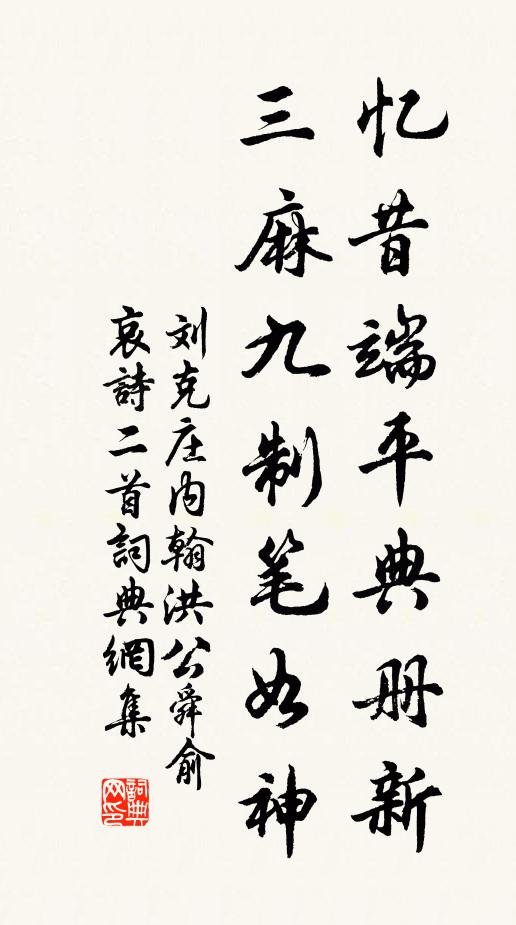 忆昔端平典册新
三麻九制笔如神
刘克庄内翰洪公舜俞
哀詩二首詞典網集
詞典网印